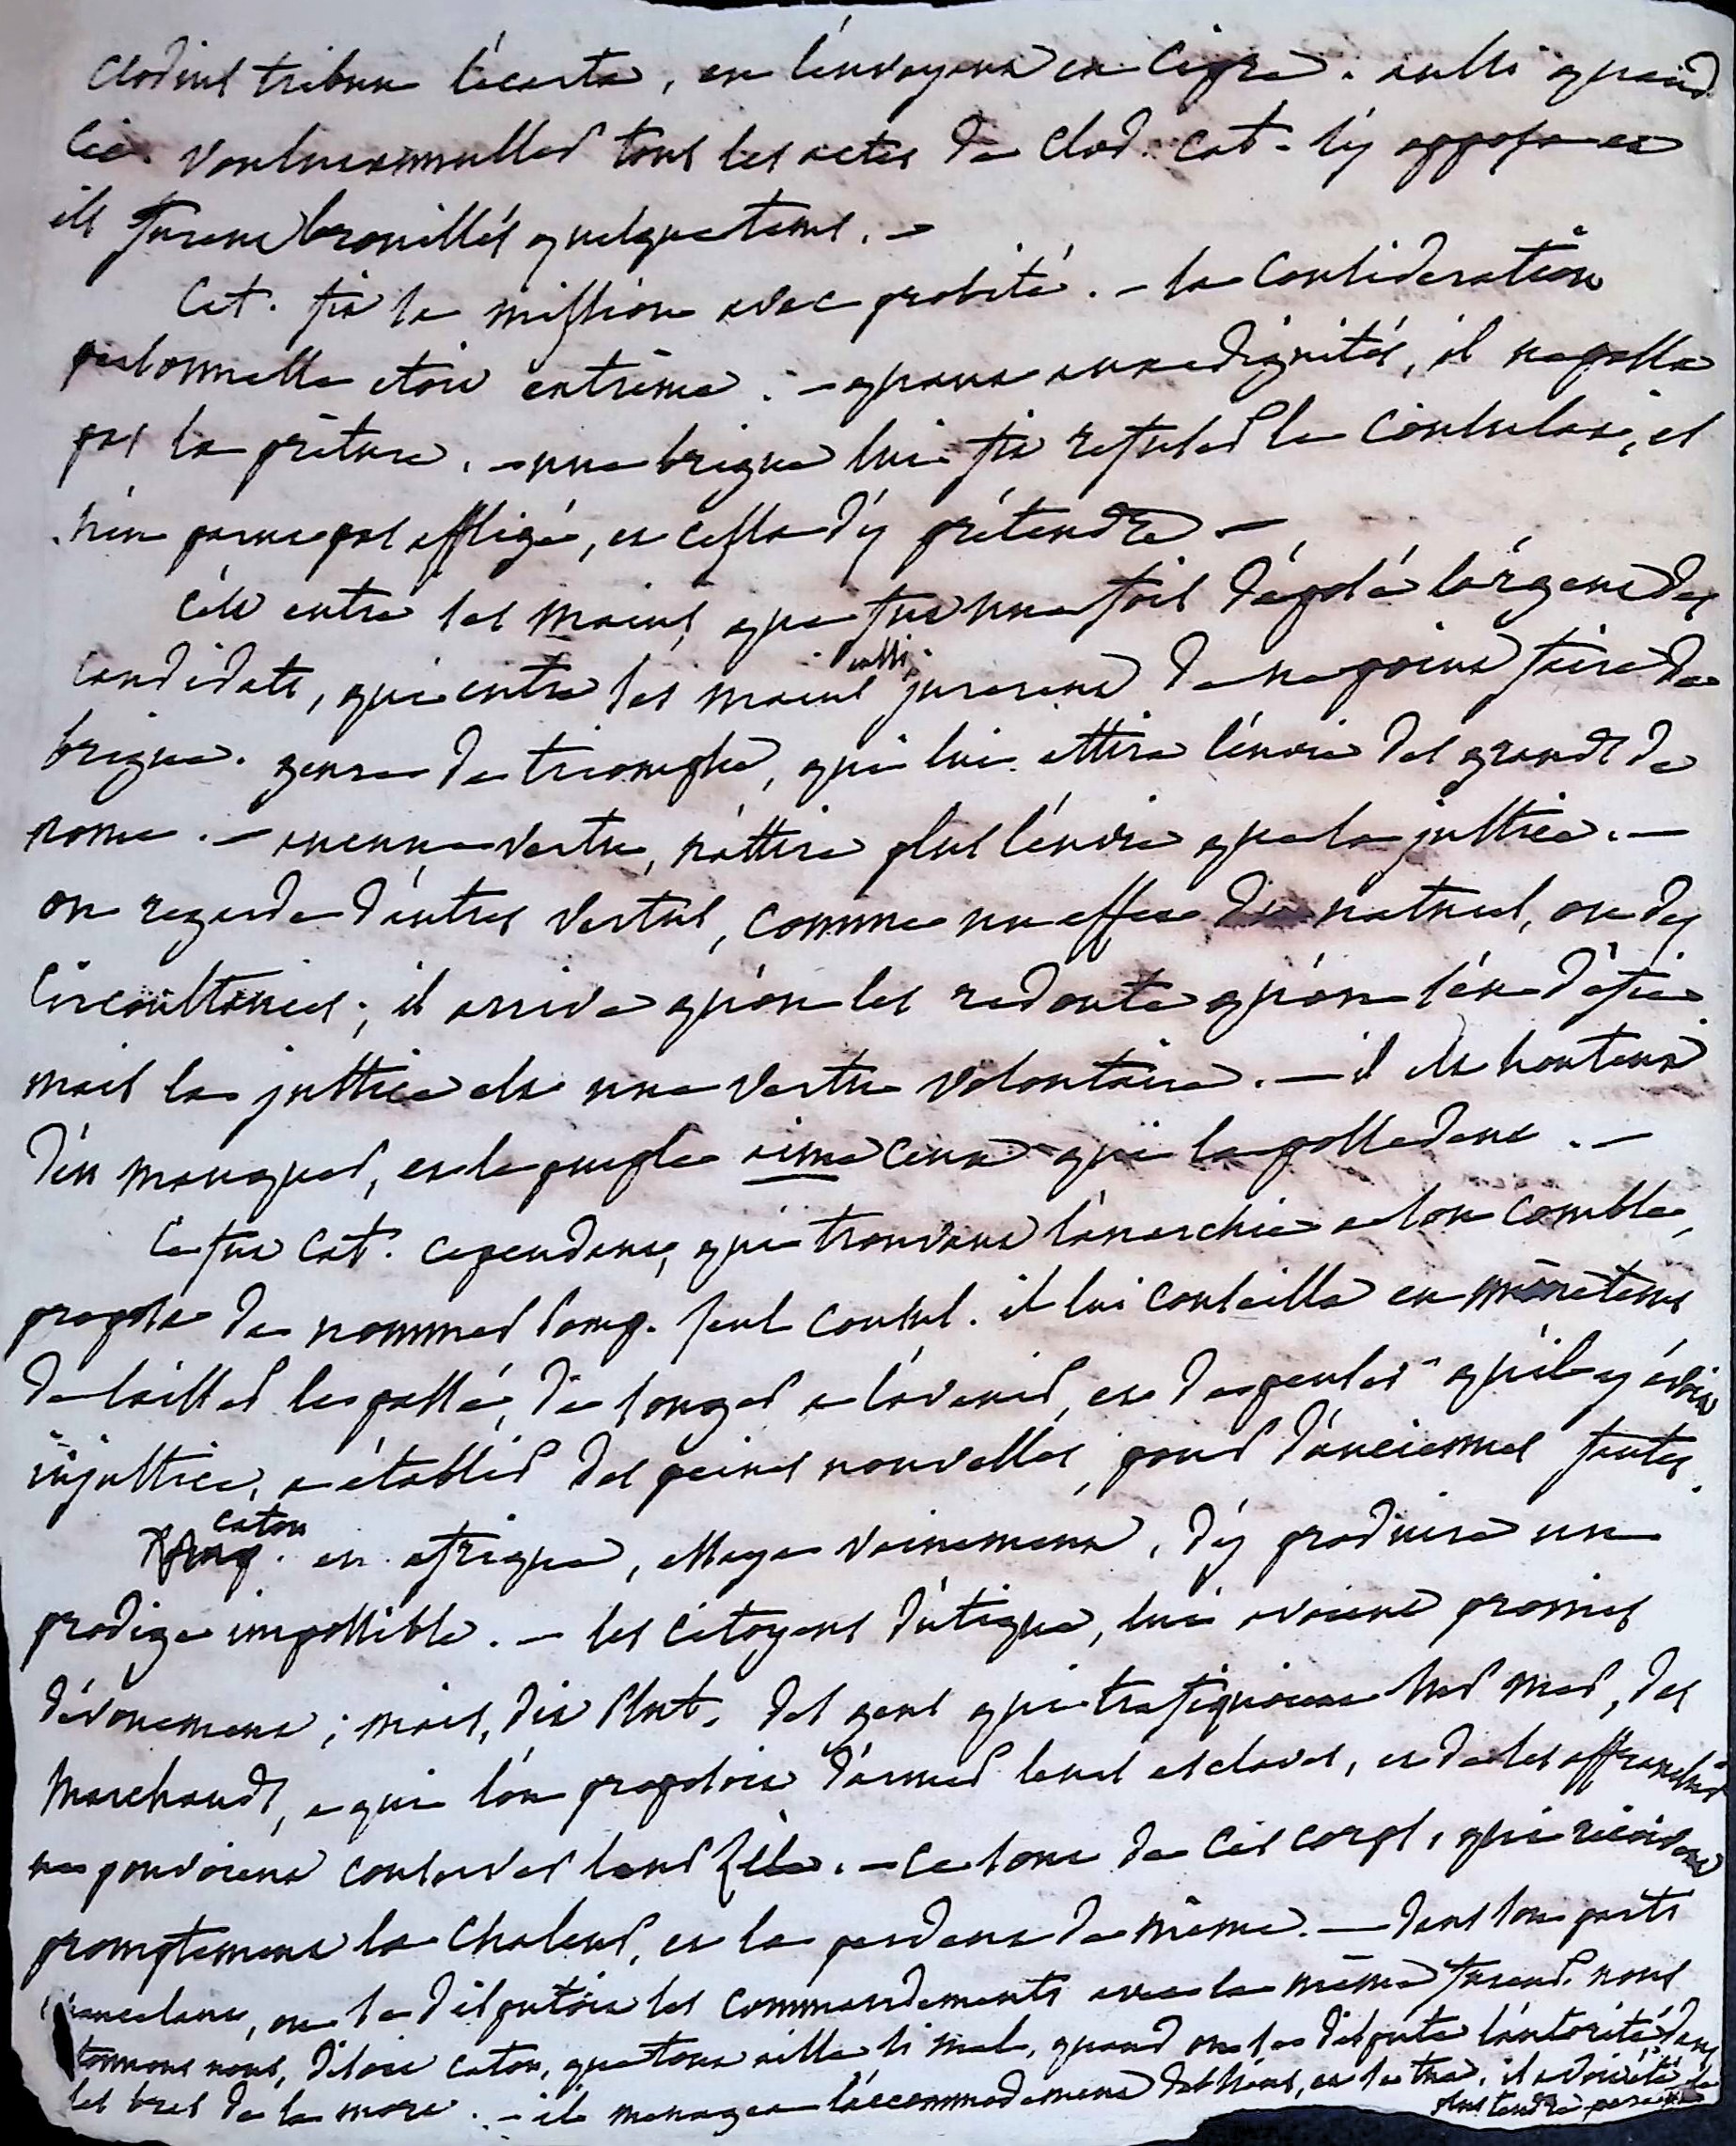 Clodius tribun l'écarta, en l'envoyant en Cipre. aussi quand
Cic. voulut annuller tous les actes de Clod. Cat. s'y opposa et
ils furent brouillés quelque tems. —
Cat. fit sa mission avec probité. — sa consideration
personnelle etoit extrême. — quant aux dignités, il ne passa
pas la préture. — une brigue lui fit refuser le Consulat, il
n'en parut pas affligé, et cessa d'y prétendre —
C'est entre ses mains, que fut une fois déposé l'argent des
candidats, qui entre ses mains aussi jurerent de ne point faire de
brigue. genre de triomphe, qui lui attira l'envie des grands de
rome. — aucune vertu, n'attire plus l'envie que la justice. —
on regarde d'autres vertus, comme un effet du naturel, ou des
circonstances; il arrive qu'on les redoute qu'on s'en défie
mais la justice est une vertu volontaire. — il est honteux
d'en manquer, et le peuple aime ceux qui la possedent. —
Ce fut Cat. cependant, qui trouvant l'anarchie a son comble,
proposa de nommer Pomp. seul consul. il lui conseilla en même tems
de laisser le passé, de songer a l'avenir, et de penser qu'il y avoit
injustice, a établir des peines nouvelles, pour d'anciennes fautes.
Caton en afrique, essaya vainement, d'y produire un
prodige impossible. — les citoyens d'utique, lui avoient promis
dévouement; mais, dit Plut. des gens qui trafiquoient sur mer, des
marchands, a qui l'on proposoit d'armer leurs esclaves, et de les affranchir
ne pouvoient conserver leur zèle. — ce sont de ces corps, qui reçoivent
promptement la chaleur, et la perdent de même. — dans son parti
chancelant, on se disputoit les commandements avec la même fureur. nous
étonnons nous, disoit caton, que tout aille si mal, quand on se dispute l'autorité, dans
les bras de la mort. — il menagea l'accommodement des siens, et se tua. il avoit été le
plus tendre